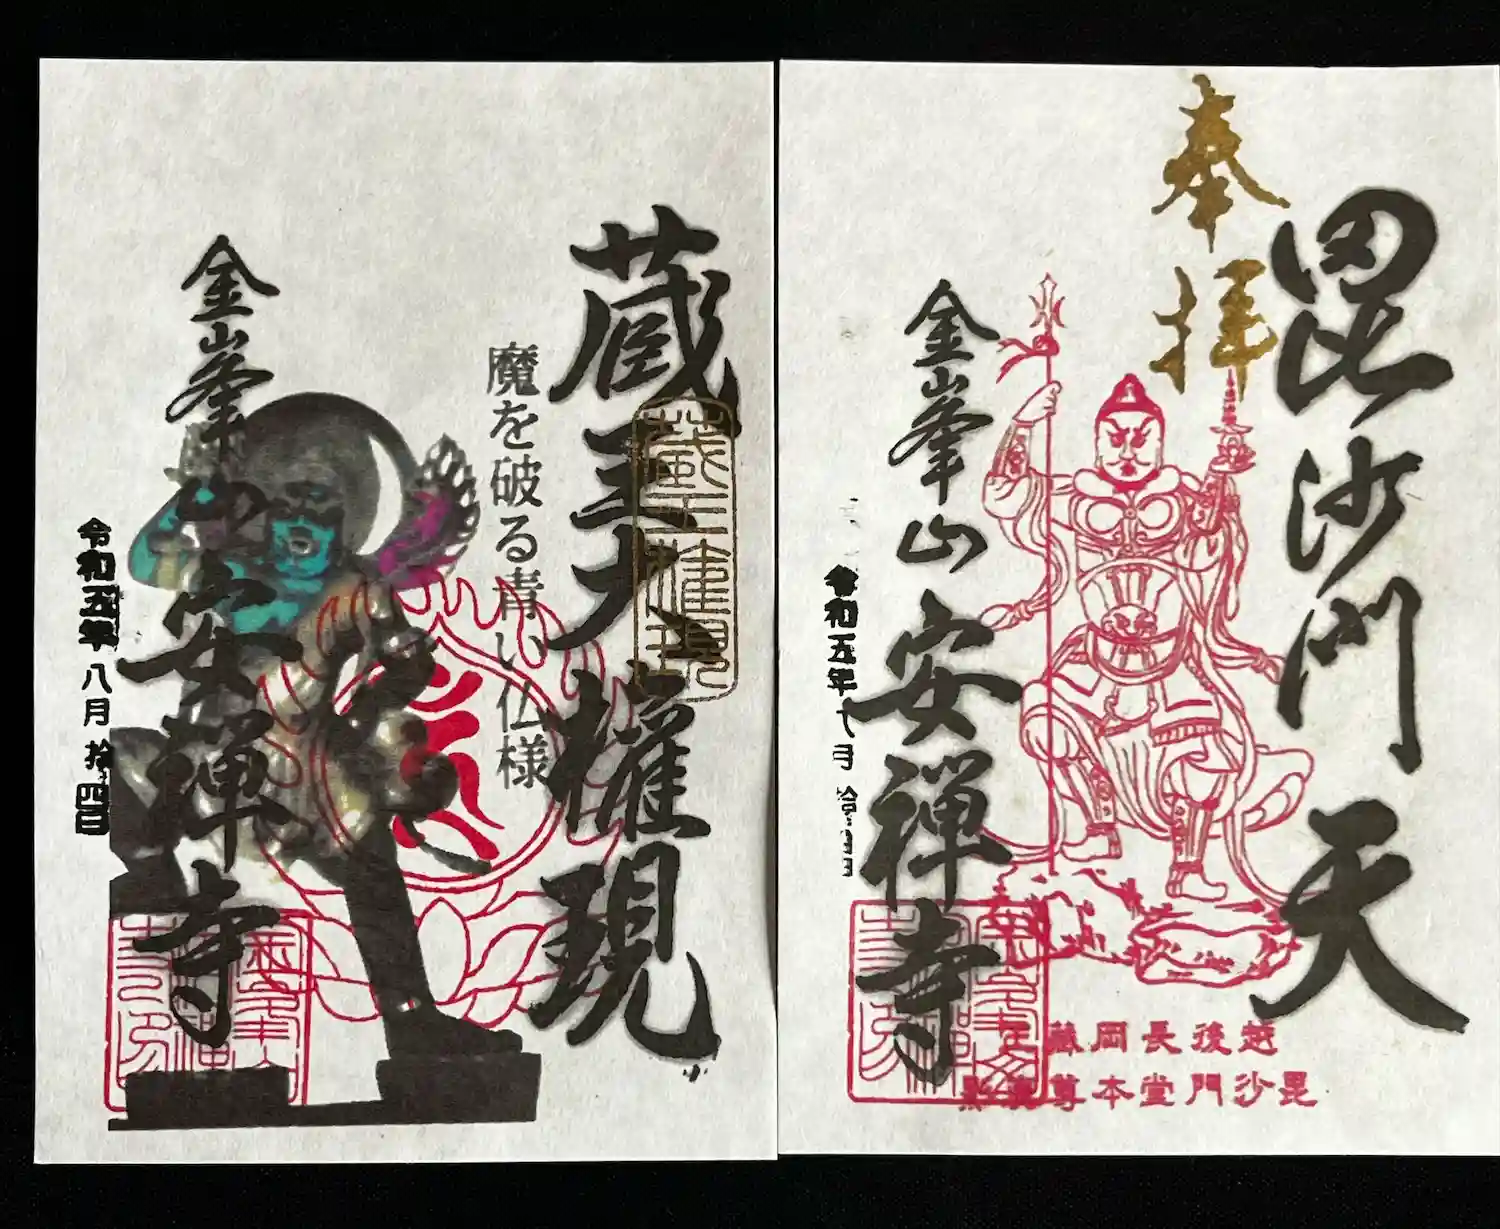 蔵王大権現
魔を破る青い仏様
金峯山安禅寺
令和五年八月拾四日
毘沙門天
奉拝
金峯山安禅寺
令和五年八月
越後長岡蔵王
毘沙門堂本尊